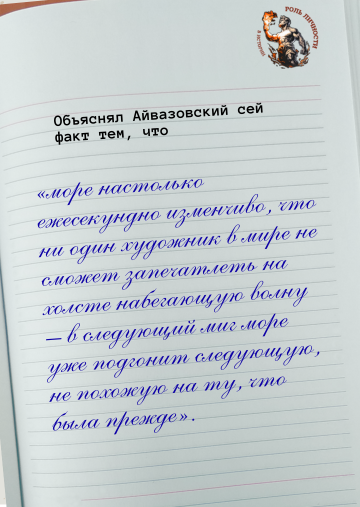 РОЛЬ ЛИЧНОСТИ
В ИСТОРИИ
Объяснял Айвазовский сей
факт тем, что
«море настолько
ежесекундно изменчиво, что
ни один художник в мире не
сможет запечатлеть на
холсте набегающую волну
– в следующий миг море
уже подгонит следующую,
не похожую на ту, что
была прежде».